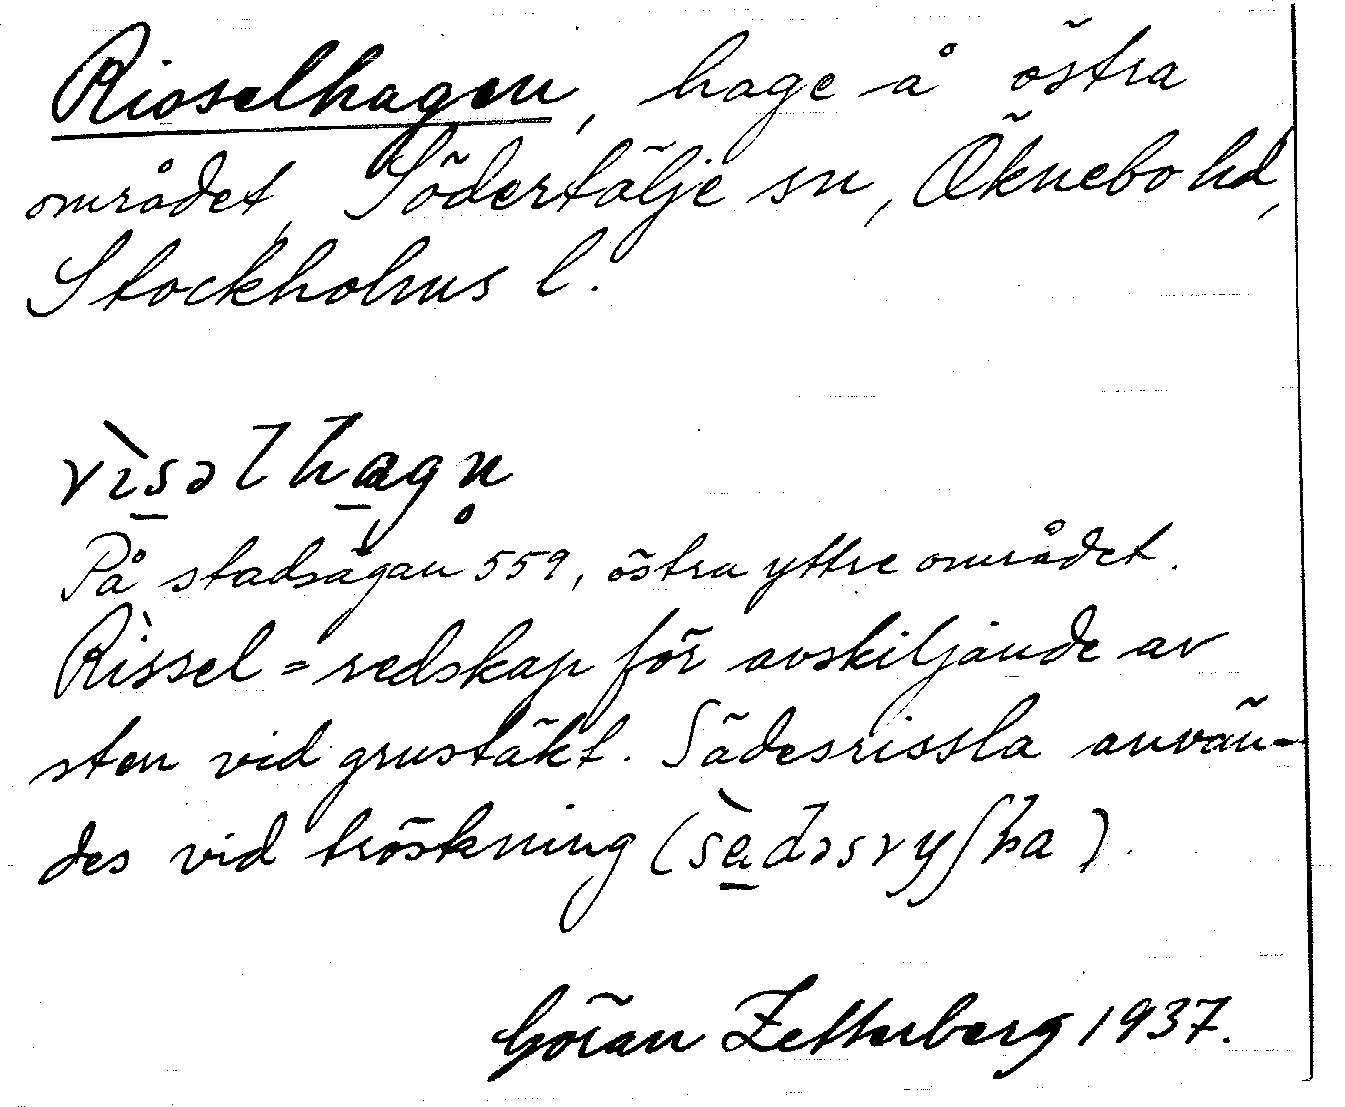 Risselhagen, hage å östra
området, Södertälje sn, Öknebo hd,
Stockholms l.
rìsəlhagn̥
På stadsägan 559, östra yttre området.
Rissel = redskap för avskiljande av
sten vid grustäkt. Sädesrissla använ-
des vid tröskning
Göran Zetterberg 1937.